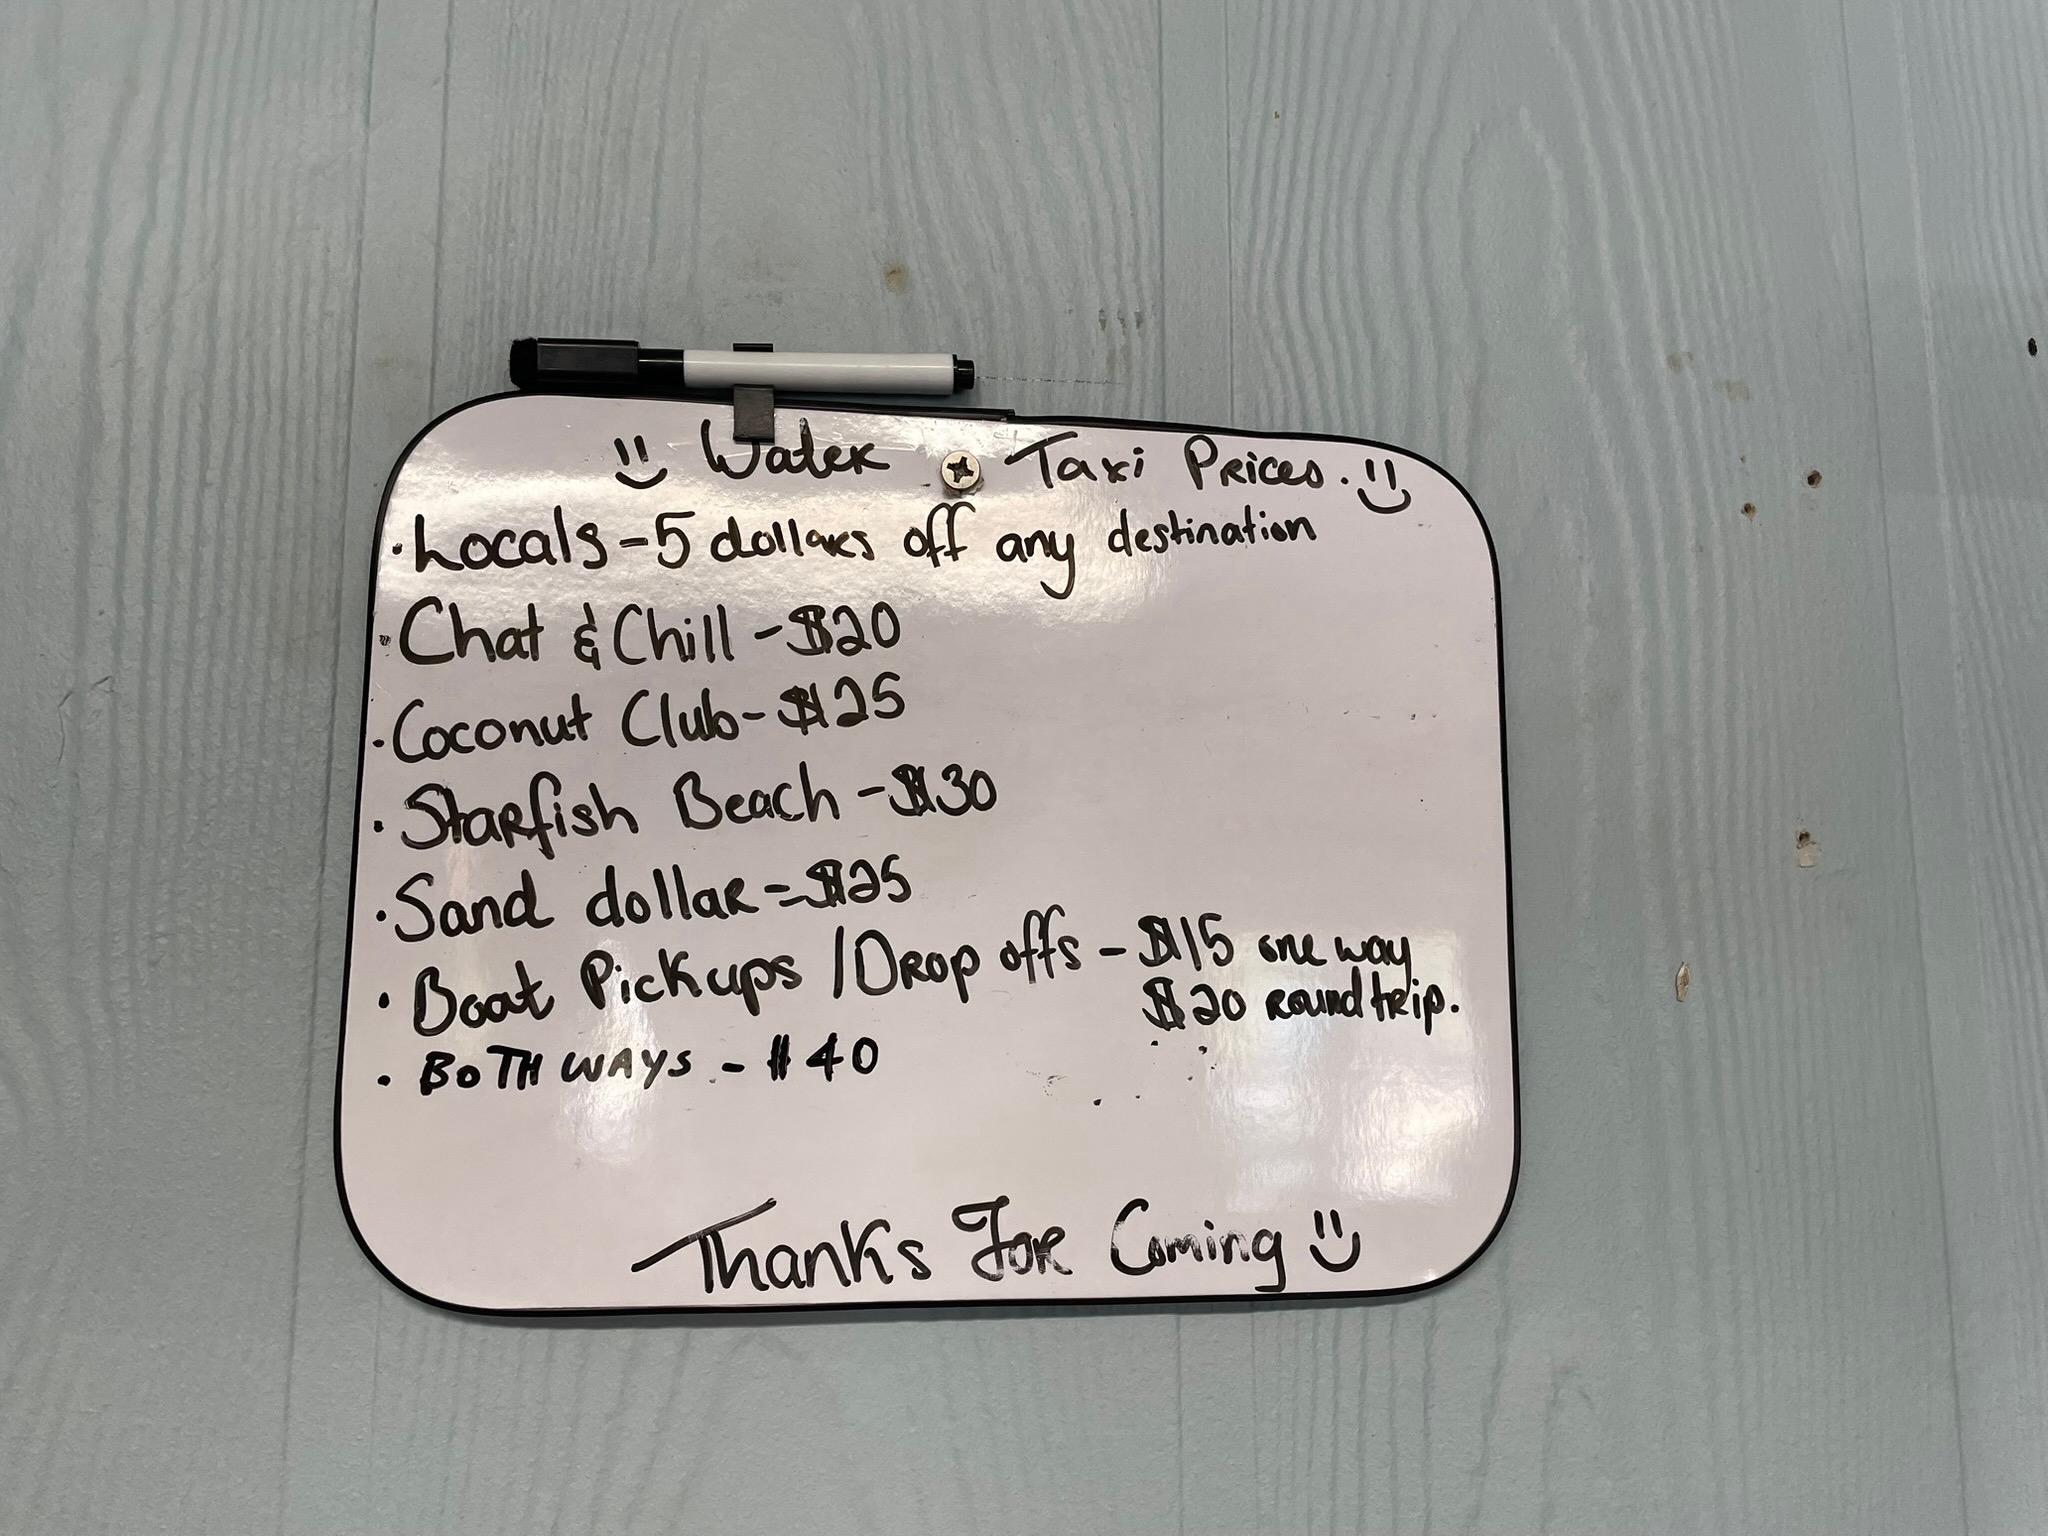 Water Taxi Prices.
· Locals - 5 dollars off any destination
· Chat & Chill - $20
· Coconut Club - $25
· Starfish Beach - $30
· Sand dollar = $25
· Boat Pickups / Drop offs - $15 one way
$20 roundtrip.
· BOTH WAYS - $40
Thanks For Coming